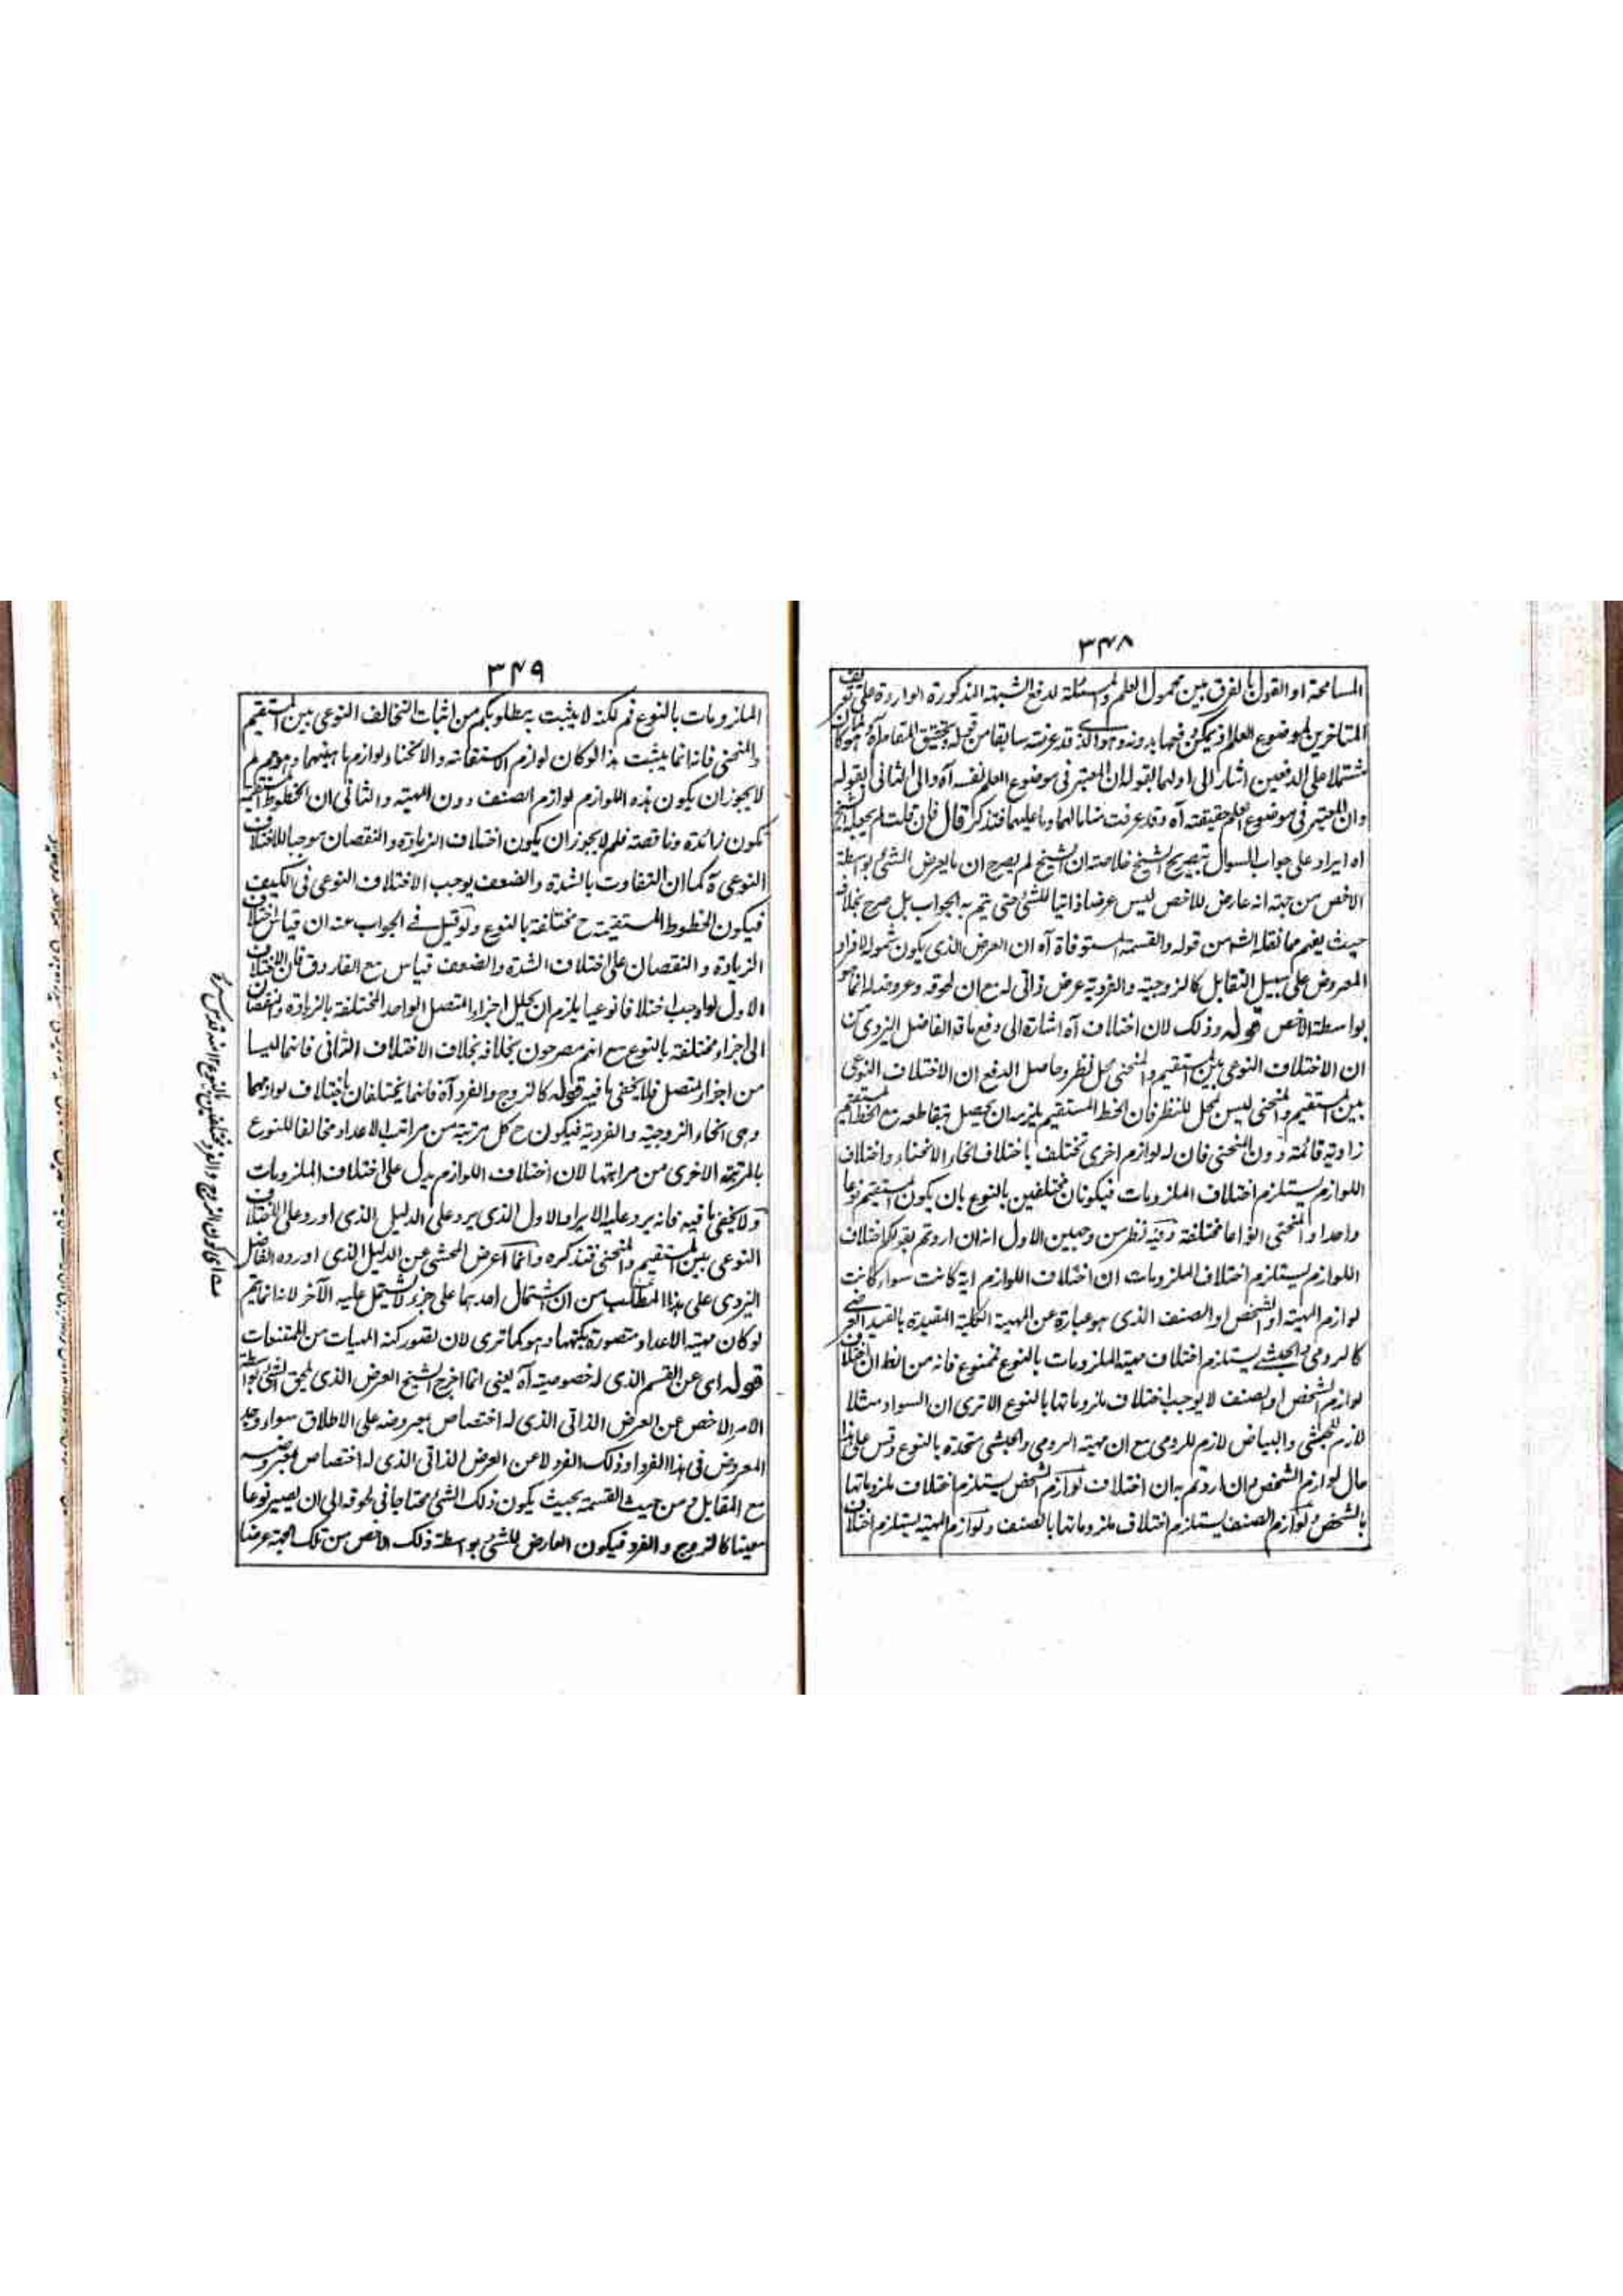 ٣٤٨
المسامحة او القول بالفرق بين محمول العلم والمسئلة لدفع الشبهة المذكورة الواردة على تعريف
المتاخرين لموضوع العلم اذ يمكن دفعها بدونه وهو الذى قد عرفته سابقا من قوله وتحقيق المقام آه ولما كان
مشتملا على الدفعين اشار الى اولهما بقوله ان المعتبر فى موضوع العلم نفسه آه والى الثانى بقوله
وان المعتبر فى موضوع العلم حقيقته آه وقد عرفت منا ما لهما وما عليهما فتذكر قال فان قلت لم يجعله الشيخ
اه ايراد على جواب السوال بتصريح الشيخ خلاصته ان الشيخ لم يصرح ان ما يعرض الشئ بواسطة
الاخص من جهة انه عارض للاخص ليس عرضا ذاتيا للشئ حتى يتم به الجواب بل صرح بخلافه
حيث يفهم مما نقله الشه من قوله والقسمة المستوفاة آه ان العرض الذى يكون شموله لافراد
المعروض على سبيل التقابل كالزوجية والفردية عرض ذاتى له مع ان لحوقه وعروضه انما هو
بواسطة الاخص قوله وذلك لان اختلاف آه اشارة الى دفع ما قد الفاضل اليزدى من
ان الاختلاف النوعى بين المستقيم والمنحنى محل نظر وحاصل الدفع ان الاختلاف النوعى
بين المستقيم والمنحنى ليس لمحل للنظر فان الخط المستقيم يلزمه ان يحصل بتقاطعه مع الخط المستقيم
زاوية قائمة دون المنحنى فان له لوازم اخرى تختلف باختلاف انحاء الانحناء واختلاف
اللوازم يستلزم اختلاف الملزومات فيكونان مختلفين بالنوع بان يكون المستقيم نوعا
واحدا والمنحنى انواعا مختلفة وفيه نظر من وجهين الاول انه ان اردتم بقولكم اختلاف
اللوازم يستلزم اختلاف الملزومات ان اختلاف اللوازم اية كانت سواء كانت
لوازم المهية او الشخص او الصنف الذى هو عبارة عن المهية الكلية المقيدة بالقيد العرضى
كالرومى والحبشى يستلزم اختلاف مهية الملزومات بالنوع فممنوع فانه من الظ ان اختلاف
لوازم الشخص او الصنف لا يوجب اختلاف ملزوماتها بالنوع الا ترى ان السواد مثلا
لازم للحبشى والبياض لازم للرومى مع ان مهية الرومى والحبشى متحدة بالنوع وقس على هذا
حال لوازم الشخص وان اردتم به ان اختلاف لوازم الشخص يستلزم اختلاف ملزوماتها
بالشخص ولوازم الصنف يستلزم اختلاف ملزوماتها بالصنف ولوازم المهية يستلزم اختلاف
٣٤٩
الملزومات بالنوع فم لكنه لا يثبت به مطلوبكم من اثبات التخالف النوعى بين المستقيم
والمنحنى فانه انما يثبت هذا لو كان لوازم الاستقامة والانحناء لوازم ماهيتهما وهو مم لم
لا يجوز ان يكون هذه اللوازم لوازم الصنف دون المهية والثانى ان الخطوط المستقيمة
تكون زائدة وناقصة فلم لا يجوز ان يكون اختلاف الزيادة والنقصان موجبا للاختلاف
النوعى ة كما ان التفاوت بالشدة والضعف يوجب الاختلاف النوعى فى الكيف
فيكون الخطوط المستقيمة ح مختلفة بالنوع ولو قيل فى الجواب عنه ان قياس اختلاف
الزيادة والنقصان على اختلاف الشدة والضعف قياس مع الفارق فان الاختلاف
الاول لو اوجب اختلافا نوعيا يلزم ان يحلل اجزاء المتصل الواحد المختلفة بالزيادة والنقصان
الى اجزاء مختلفة بالنوع مع انهم مصرحون بخلافه بخلاف الاختلاف الثانى فانهما ليسا
من اجزاء المتصل فلا يخفى ما فيه قوله كالزوج والفرد آه فانهما يختلفان باختلاف لوازمهما
وهى انحاء الزوجية والفردية فيكون ح كل مرتبة من مراتب الاعداد مخالفا للنوع
بالمرتبة الاخرى من مراتبها لان اختلاف اللوازم يدل على اختلاف الملزومات
ولا يخفى ما فيه فانه يرد عليه الايراد الاول الذى يرد على الدليل الذى اورد على الاختلاف
النوعى بين المستقيم والمنحنى فتذكره وانما اعرض المحشى عن الدليل الذى اورده الفاضل
اليزدى على هذا المطلب من ان اشتمال احدهما على جزء لا يشتمل عليه الآخر لانه انما يتم
لو كان مهية الاعداد متصورة بكنهها وهو كما ترى لان تصور كنه المهيات من الممتنعات
قوله اى عن القسم الذى له خصوصية آه يعنى انما اخرج الشيخ العرض الذى يلحق الشئ بواسطة
الامر الاخص عن العرض الذاتى الذى له اختصاص بمعروضه على الاطلاق سواء وجد
المعروض فى هذا الفرد او ذلك الفرد لا عن العرض الذاتى الذى له اختصاص بمعروضه
مع المقابل ومن حيث القسمة بحيث يكون ذلك الشئ محتاجا فى لحوقه الى ان يصير نوعا
معينا كالزوج والفرد فيكون العارض للشئ بواسطة ذلك الاخص من تلك الجهة عرضا
اى كون الزوج والفرد مختلفين بالنوع ١٢ منه قدس سره